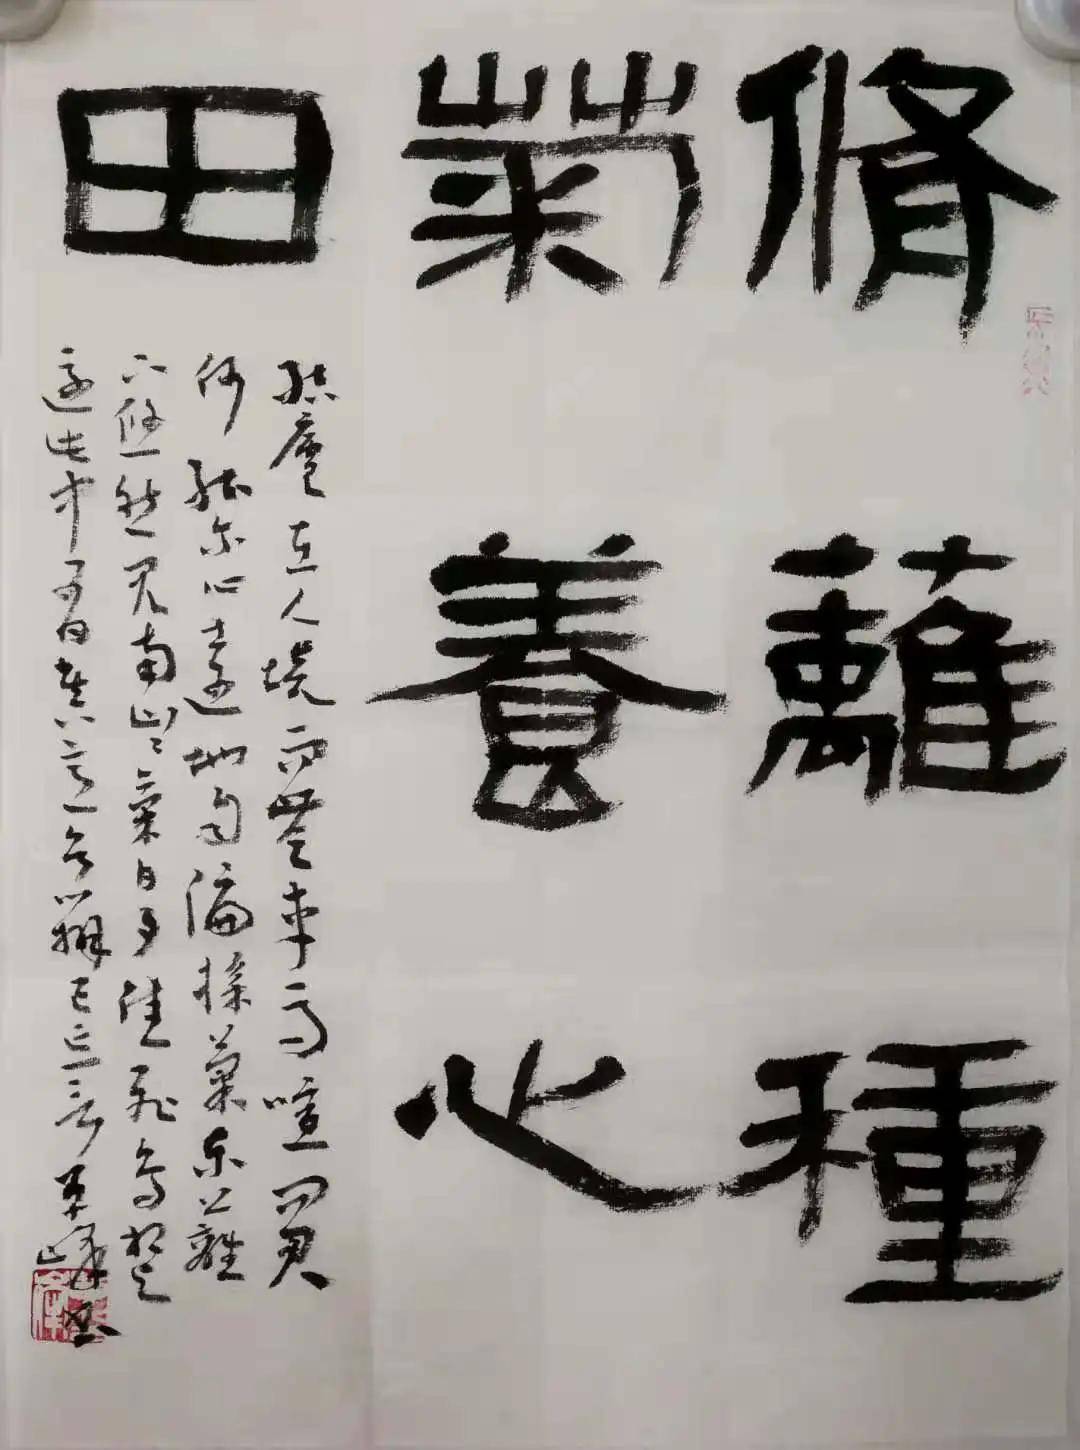 脩蘺種
菊養心
田
結廬在人境而無車馬喧问君
何能尔心遠地自偏採菊东籬
下悠然见南山〻氣日夕佳飛鳥相与
還此中有真意欲辨已忘言 峰书